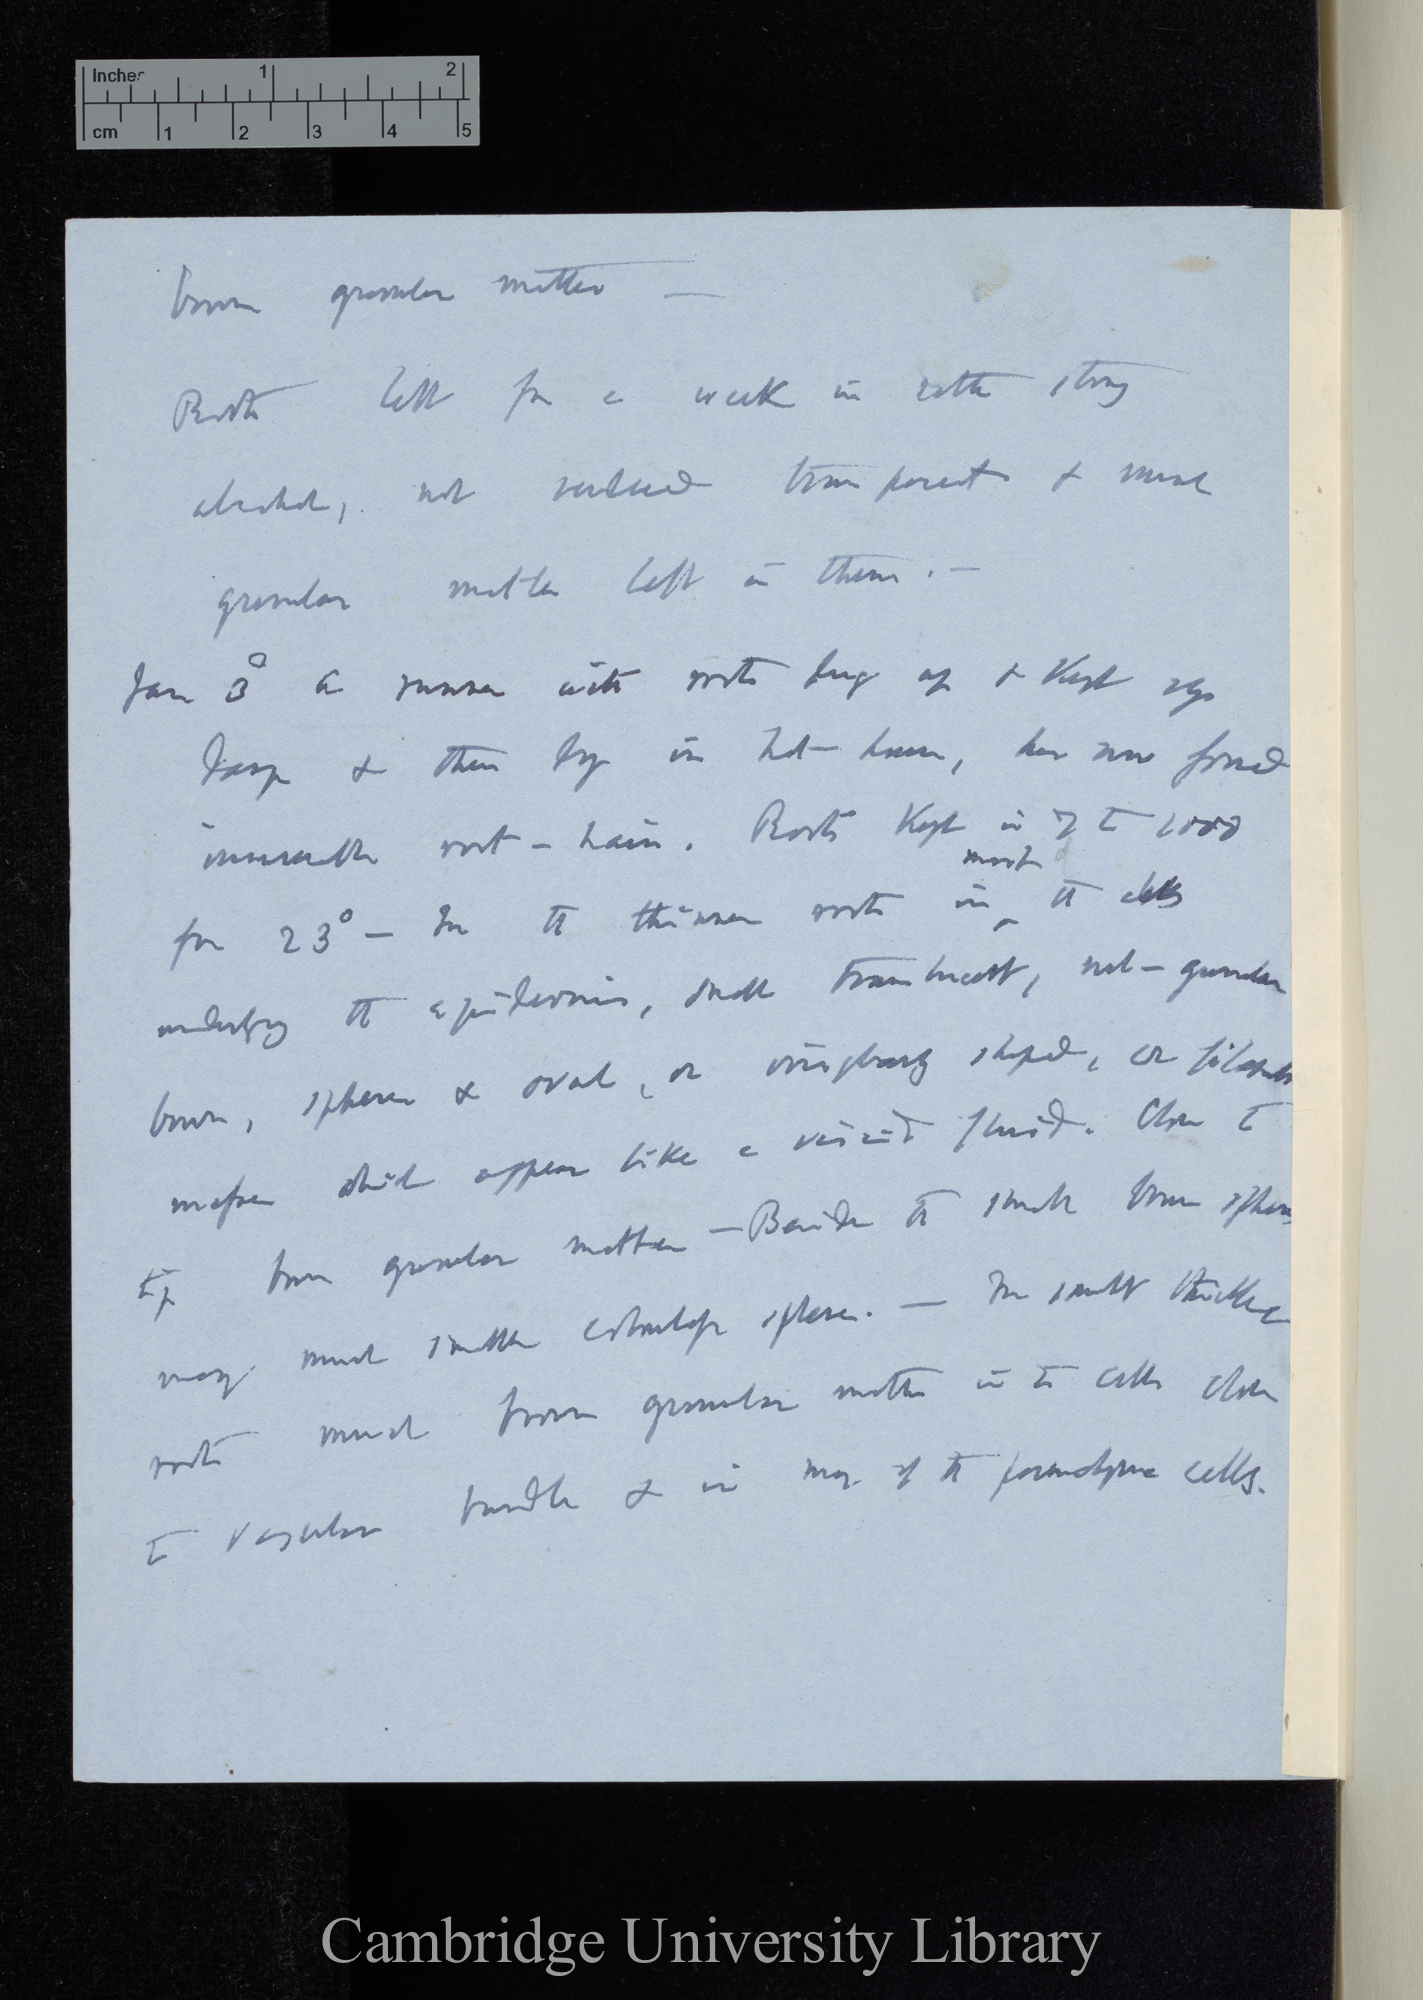 Inches 1 2
cm 1 2 3 4 5
brown granular matter —
Roots left for a week in rather strong
alcohol, not rendered transparent & much
granular matter left in them. —
Jan 3° a runner with roots dug up & kept
damp & then dry in hot-house, has now formed
innumerable root-hairs. Roots kept in 7 to 1000
for 23° — In the thinner roots in
most
the cells
underlying the epidermis, small translucent, not-granular
brown, spheres & oval, or irregularly shaped, or
masses which appear like a viscid fluid. Close to
tip brown granular matter — Beside the small brown spheres
many much smaller colourless spheres. — In small thickened
roots much brown granular matter in the cells close
to vascular bundle & in many of the parenchyma cells.
Cambridge University Library